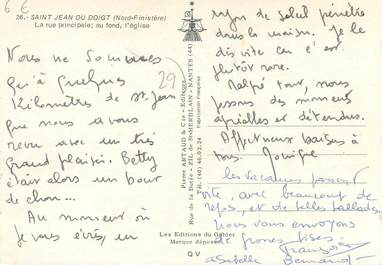 6 €
26.- SAINT JEAN DU DOIGT (Nord-Finistère)
La rue principale; au fond, l'église
Nous ne sommes
qu'à quelques
kilomètres de St. Jean
que nous avons
revu avec un très
grand plaisir. Betty
était alors un bout
de chou...
Au moment où
je vous écris, un
29
Pierre ARTAUD & Cie - Editeurs
Rue de la Dutée - ZIL de St-HERBLAIN - NANTES (44)
Tél. (40) 46.02.24
Fabrication Française
rayon de soleil pénètre
dans la maison. Je le
dis vite car c'est
plutôt rare.
Malgré tout, nous
passons des moments
agréables et détendus.
Affectueux baisers à
tous. Monique
les vacances passent
vite, avec beaucoup de
repos, et de belles ballades,
nous vous envoyons
de grosses bises.
Françoise
Isabelle Bernard
Les Editions du Gabier
Marque déposée
OV